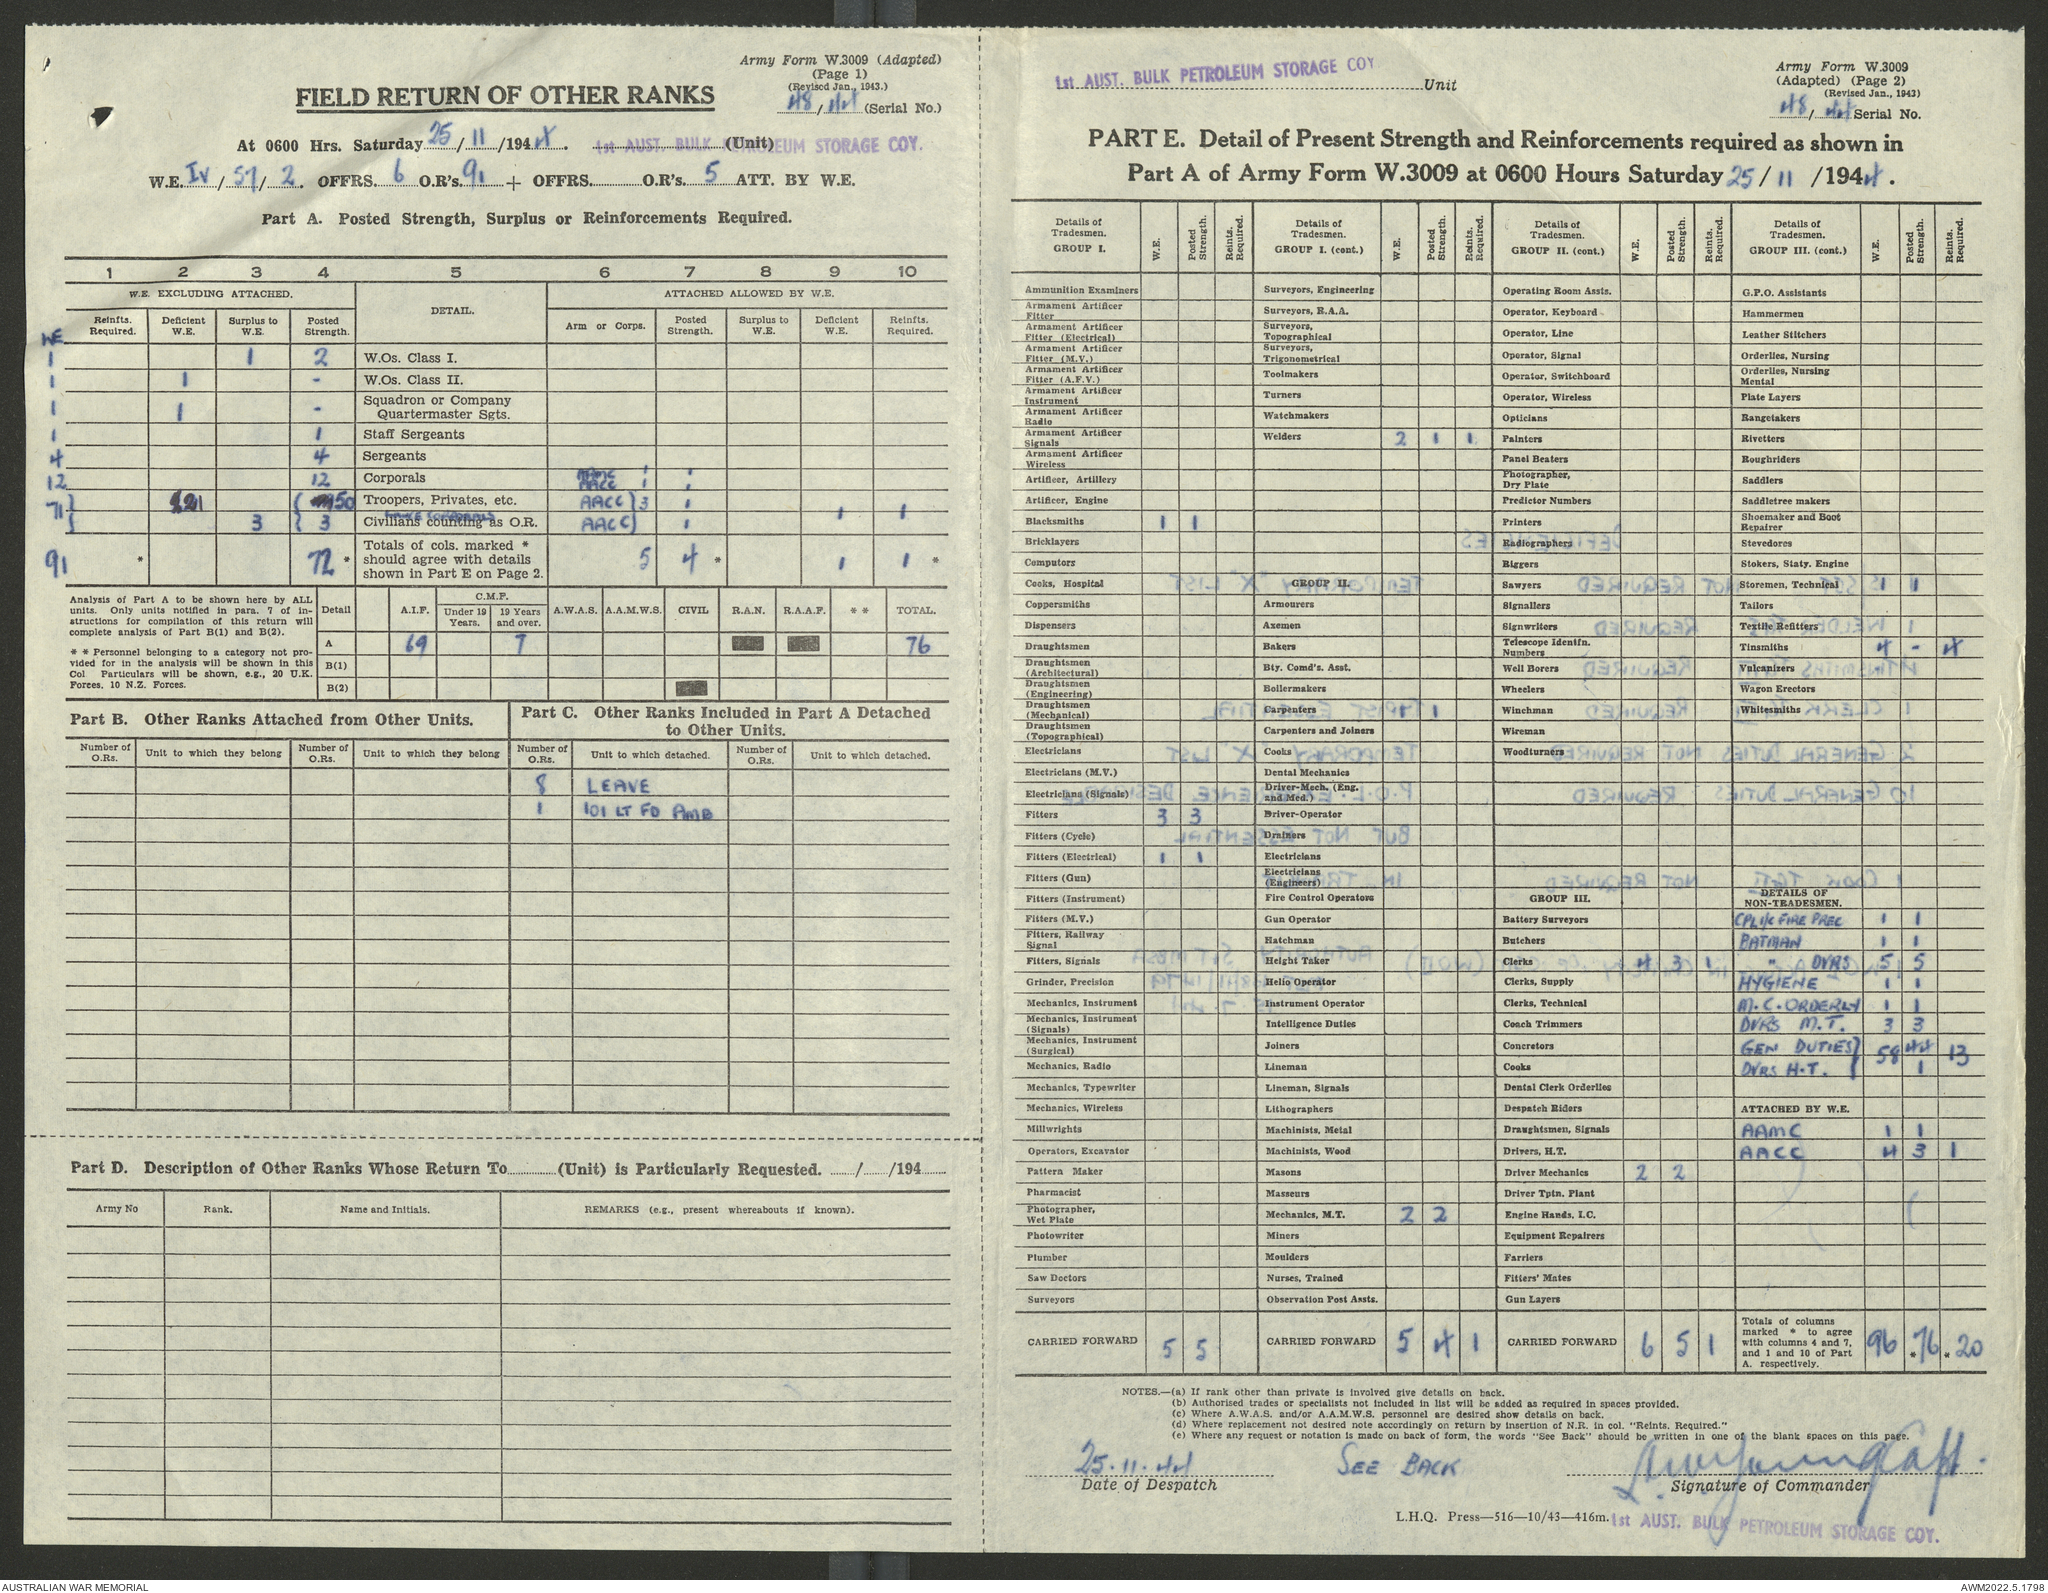 Army Form W.3009 (Adapted)
(Page 1)
(Revised Jan., 1943.)
48/44 (Serial No.)
FIELD RETURN OF OTHER RANKS
At 0600 Hrs. Saturday 25/11/1944. 1st AUST. BULK PETROLEUM STORAGE COY. (Unit)
W.E. IV/57/2. OFFRS. 6 O.R's. 91 + OFFRS. O.R's. 5 ATT. BY W.E.
Part A. Posted Strength, Surplus or Reinforcements Required.
1 2 3 4 5 6 7 8 9 10
W.E. EXCLUDING ATTACHED. DETAIL. ATTACHED ALLOWED BY W.E.
WE Reinfts. Required. Deficient W.E. Surplus to W.E. Posted Strength. Arm or Corps. Posted Strength. Surplus to W.E. Deficient W.E. Reinfts. Required.
1 1 2 W.Os. Class I.
1 1 - W.Os. Class II.
1 1 - Squadron or Company Quartermaster Sgts.
1 1 Staff Sergeants
4 4 Sergeants
12 12 Corporals AAMC 1 1
AACC 1 1
71 21 50 Troopers, Privates, etc. AACC 3 1 1 1
LANCE CORPORALS
3 3 Civilians counting as O.R. AACC 1
91 * 72 * Totals of cols. marked * should agree with details shown in Part E on Page 2. 5 4 * 1 1 *
Analysis of Part A to be shown here by ALL units. Only units notified in para. 7 of instructions for compilation of this return will complete analysis of Part B(1) and B(2).
* * Personnel belonging to a category not provided for in the analysis will be shown in this Col. Particulars will be shown, e.g., 20 U.K. Forces, 10 N.Z. Forces.
Detail A.I.F. C.M.F. Under 19 Years. 19 Years and over. A.W.A.S. A.A.M.W.S. CIVIL R.A.N. R.A.A.F. * * TOTAL.
A 69 7 76
B(1)
B(2)
Part B. Other Ranks Attached from Other Units.
Number of O.Rs. Unit to which they belong Number of O.Rs. Unit to which they belong
Part C. Other Ranks Included in Part A Detached to Other Units.
Number of O.Rs. Unit to which detached. Number of O.Rs. Unit to which detached.
8 LEAVE
1 101 LT FD AMB
Part D. Description of Other Ranks Whose Return To (Unit) is Particularly Requested. / /194
Army No Rank. Name and Initials. REMARKS (e.g., present whereabouts if known).
1st AUST. BULK PETROLEUM STORAGE COY Unit
Army Form W.3009
(Adapted) (Page 2)
(Revised Jan., 1943)
48/44 Serial No.
PART E. Detail of Present Strength and Reinforcements required as shown in
Part A of Army Form W.3009 at 0600 Hours Saturday 25/11/1944.
Details of Tradesmen. GROUP I. W.E. Posted Strength. Reints. Required.
Ammunition Examiners
Armament Artificer Fitter
Armament Artificer Fitter (Electrical)
Armament Artificer Fitter (M.V.)
Armament Artificer Fitter (A.F.V.)
Armament Artificer Instrument
Armament Artificer Radio
Armament Artificer Signals
Armament Artificer Wireless
Artificer, Artillery
Artificer, Engine
Blacksmiths 1 1
Bricklayers
Computors
Cooks, Hospital
Coppersmiths
Dispensers
Draughtsmen
Draughtsmen (Architectural)
Draughtsmen (Engineering)
Draughtsmen (Mechanical)
Draughtsmen (Topographical)
Electricians
Electricians (M.V.)
Electricians (Signals)
Fitters 3 3
Fitters (Cycle)
Fitters (Electrical) 1 1
Fitters (Gun)
Fitters (Instrument)
Fitters (M.V.)
Fitters, Railway Signal
Fitters, Signals
Grinder, Precision
Mechanics, Instrument
Mechanics, Instrument (Signals)
Mechanics, Instrument (Surgical)
Mechanics, Radio
Mechanics, Typewriter
Mechanics, Wireless
Millwrights
Operators, Excavator
Pattern Maker
Pharmacist
Photographer, Wet Plate
Photowriter
Plumber
Saw Doctors
Surveyors
CARRIED FORWARD 5 5
Details of Tradesmen. GROUP I. (cont.) W.E. Posted Strength. Reints. Required.
Surveyors, Engineering
Surveyors, R.A.A.
Surveyors, Topographical
Surveyors, Trigonometrical
Toolmakers
Turners
Watchmakers
Welders 2 1 1
GROUP II.
Armourers
Axemen
Bakers
Bty. Comd's. Asst.
Boilermakers
Carpenters 1 1
Carpenters and Joiners
Cooks
Dental Mechanics
Driver-Mech. (Eng. and Med.)
Driver-Operator
Drainers
Electricians
Electricians (Engineers)
Fire Control Operators
Gun Operator
Hatchman
Height Taker
Helio Operator
Instrument Operator
Intelligence Duties
Joiners
Lineman
Lineman, Signals
Lithographers
Machinists, Metal
Machinists, Wood
Masons
Masseurs
Mechanics, M.T. 2 2
Miners
Moulders
Nurses, Trained
Observation Post Assts.
CARRIED FORWARD 5 4 1
Details of Tradesmen. GROUP II. (cont.) W.E. Posted Strength. Reints. Required.
Operating Room Assts.
Operator, Keyboard
Operator, Line
Operator, Signal
Operator, Switchboard
Operator, Wireless
Opticians
Painters
Panel Beaters
Photographer, Dry Plate
Predictor Numbers
Printers
Radiographers
Riggers
Sawyers
Signallers
Signwriters
Telescope Identfn. Numbers
Well Borers
Wheelers
Winchman
Wireman
Woodturners
GROUP III.
Battery Surveyors
Butchers
Clerks 4 3 1
Clerks, Supply
Clerks, Technical
Coach Trimmers
Concretors
Cooks
Dental Clerk Orderlies
Despatch Riders
Draughtsmen, Signals
Drivers, H.T.
Driver Mechanics 2 2
Driver Tptn. Plant
Engine Hands, I.C.
Equipment Repairers
Farriers
Fitters' Mates
Gun Layers
CARRIED FORWARD 6 5 1
Details of Tradesmen. GROUP III. (cont.) W.E. Posted Strength. Reints. Required.
G.P.O. Assistants
Hammermen
Leather Stitchers
Orderlies, Nursing
Orderlies, Nursing Mental
Plate Layers
Rangetakers
Rivetters
Roughriders
Saddlers
Saddletree makers
Shoemaker and Boot Repairer
Stevedores
Stokers, Staty. Engine
Storemen, Technical 1 1
Tailors
Textile Refitters
Tinsmiths 4 - 4
Vulcanizers
Wagon Erectors
Whitesmiths
DETAILS OF NON-TRADESMEN.
CPL I/C FIRE PREC 1 1
BATMAN 1 1
" DVRS 5 5
HYGIENE 1 1
M.C. ORDERLY 1 1
DVRS M.T. 3 3
GEN DUTIES 58 44 13
DVRS H.T. 1
ATTACHED BY W.E.
AAMC 1 1
AACC 4 3 1
Totals of columns marked * to agree with columns 4 and 7, and 1 and 10 of Part A. respectively. 96 * 76 * 20
NOTES.—(a) If rank other than private is involved give details on back.
(b) Authorised trades or specialists not included in list will be added as required in spaces provided.
(c) Where A.W.A.S. and/or A.A.M.W.S. personnel are desired show details on back.
(d) Where replacement not desired note accordingly on return by insertion of N.R. in col. "Reints. Required."
(e) Where any request or notation is made on back of form, the words "See Back" should be written in one of the blank spaces on this page.
25.11.44 SEE BACK
Date of Despatch Signature of Commander
L.H.Q. Press—516—10/43—416m. 1st AUST. BULK PETROLEUM STORAGE COY.
AUSTRALIAN WAR MEMORIAL AWM2022.5.1798